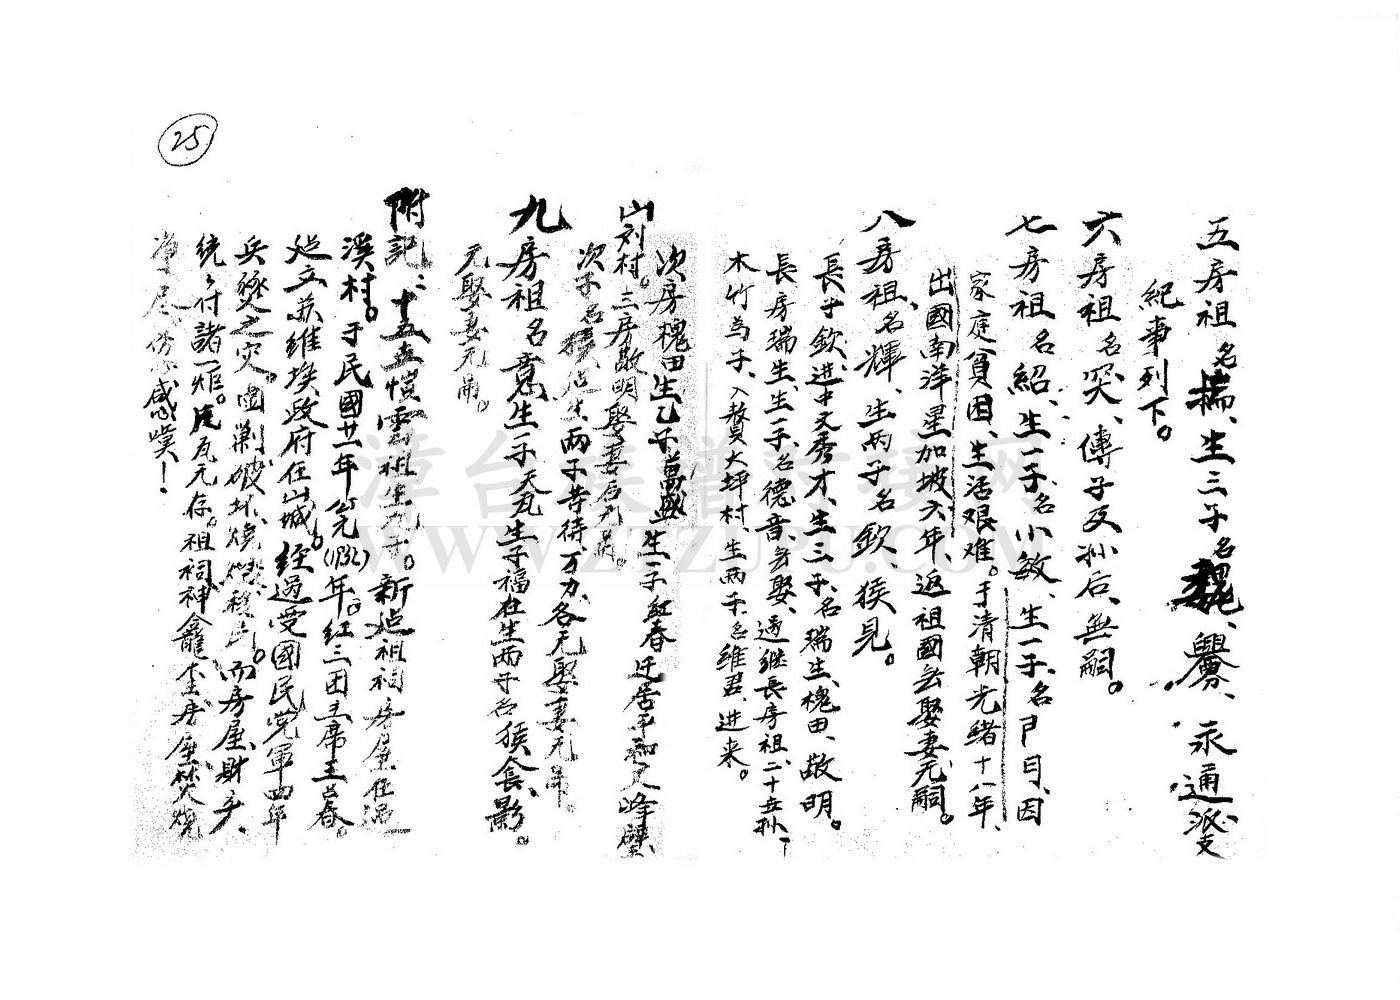 25
五房祖名㩧、生三子名魏、釁、永通派支
紀事列下。
六房祖名突、傳子及孙后、無嗣。
七房祖名紹、生一子、名小敏、生一子、名日、因
家庭貧困、生活艰难。于清朝光緒十八年、
出國南洋星加坡六年、返祖國无娶妻无嗣。
八房祖、名輝、生两子名欽、侯見。
長子欽、进中文秀才、生三子、名瑞生、槐田、敬明。
長房瑞生、生一子、名德音、无娶、過继長房祖二十五孙、
木竹為子、入贅大坪村、生两子、名維君、进来。
次房槐田生乙子、萬盛生一子紅春迁居平和文峰壁
山刘村。三房敬明娶妻后无嗣。
次子名猴、生两子等待、万力、各无娶妻无嗣。
九房祖名意、生一子天瓦生子福在生两子名猴食、影。
无娶妻无嗣。
附記：十五世愷雲祖生九子。新建祖祠房屋在過
溪村。于民國廿一年公元(1932)年。紅三团主席王占春。
建立苏維埃政府在山城。經過受國民党軍四年
兵燹之灾。圍剿破坏燒燬。而房屋、財产、
統统付諸一炬。片瓦无存。祖祠神龕全房屋焚燒
净尽、感嘆！
漳台族譜对接网
WWW.ZTZUPU.COM